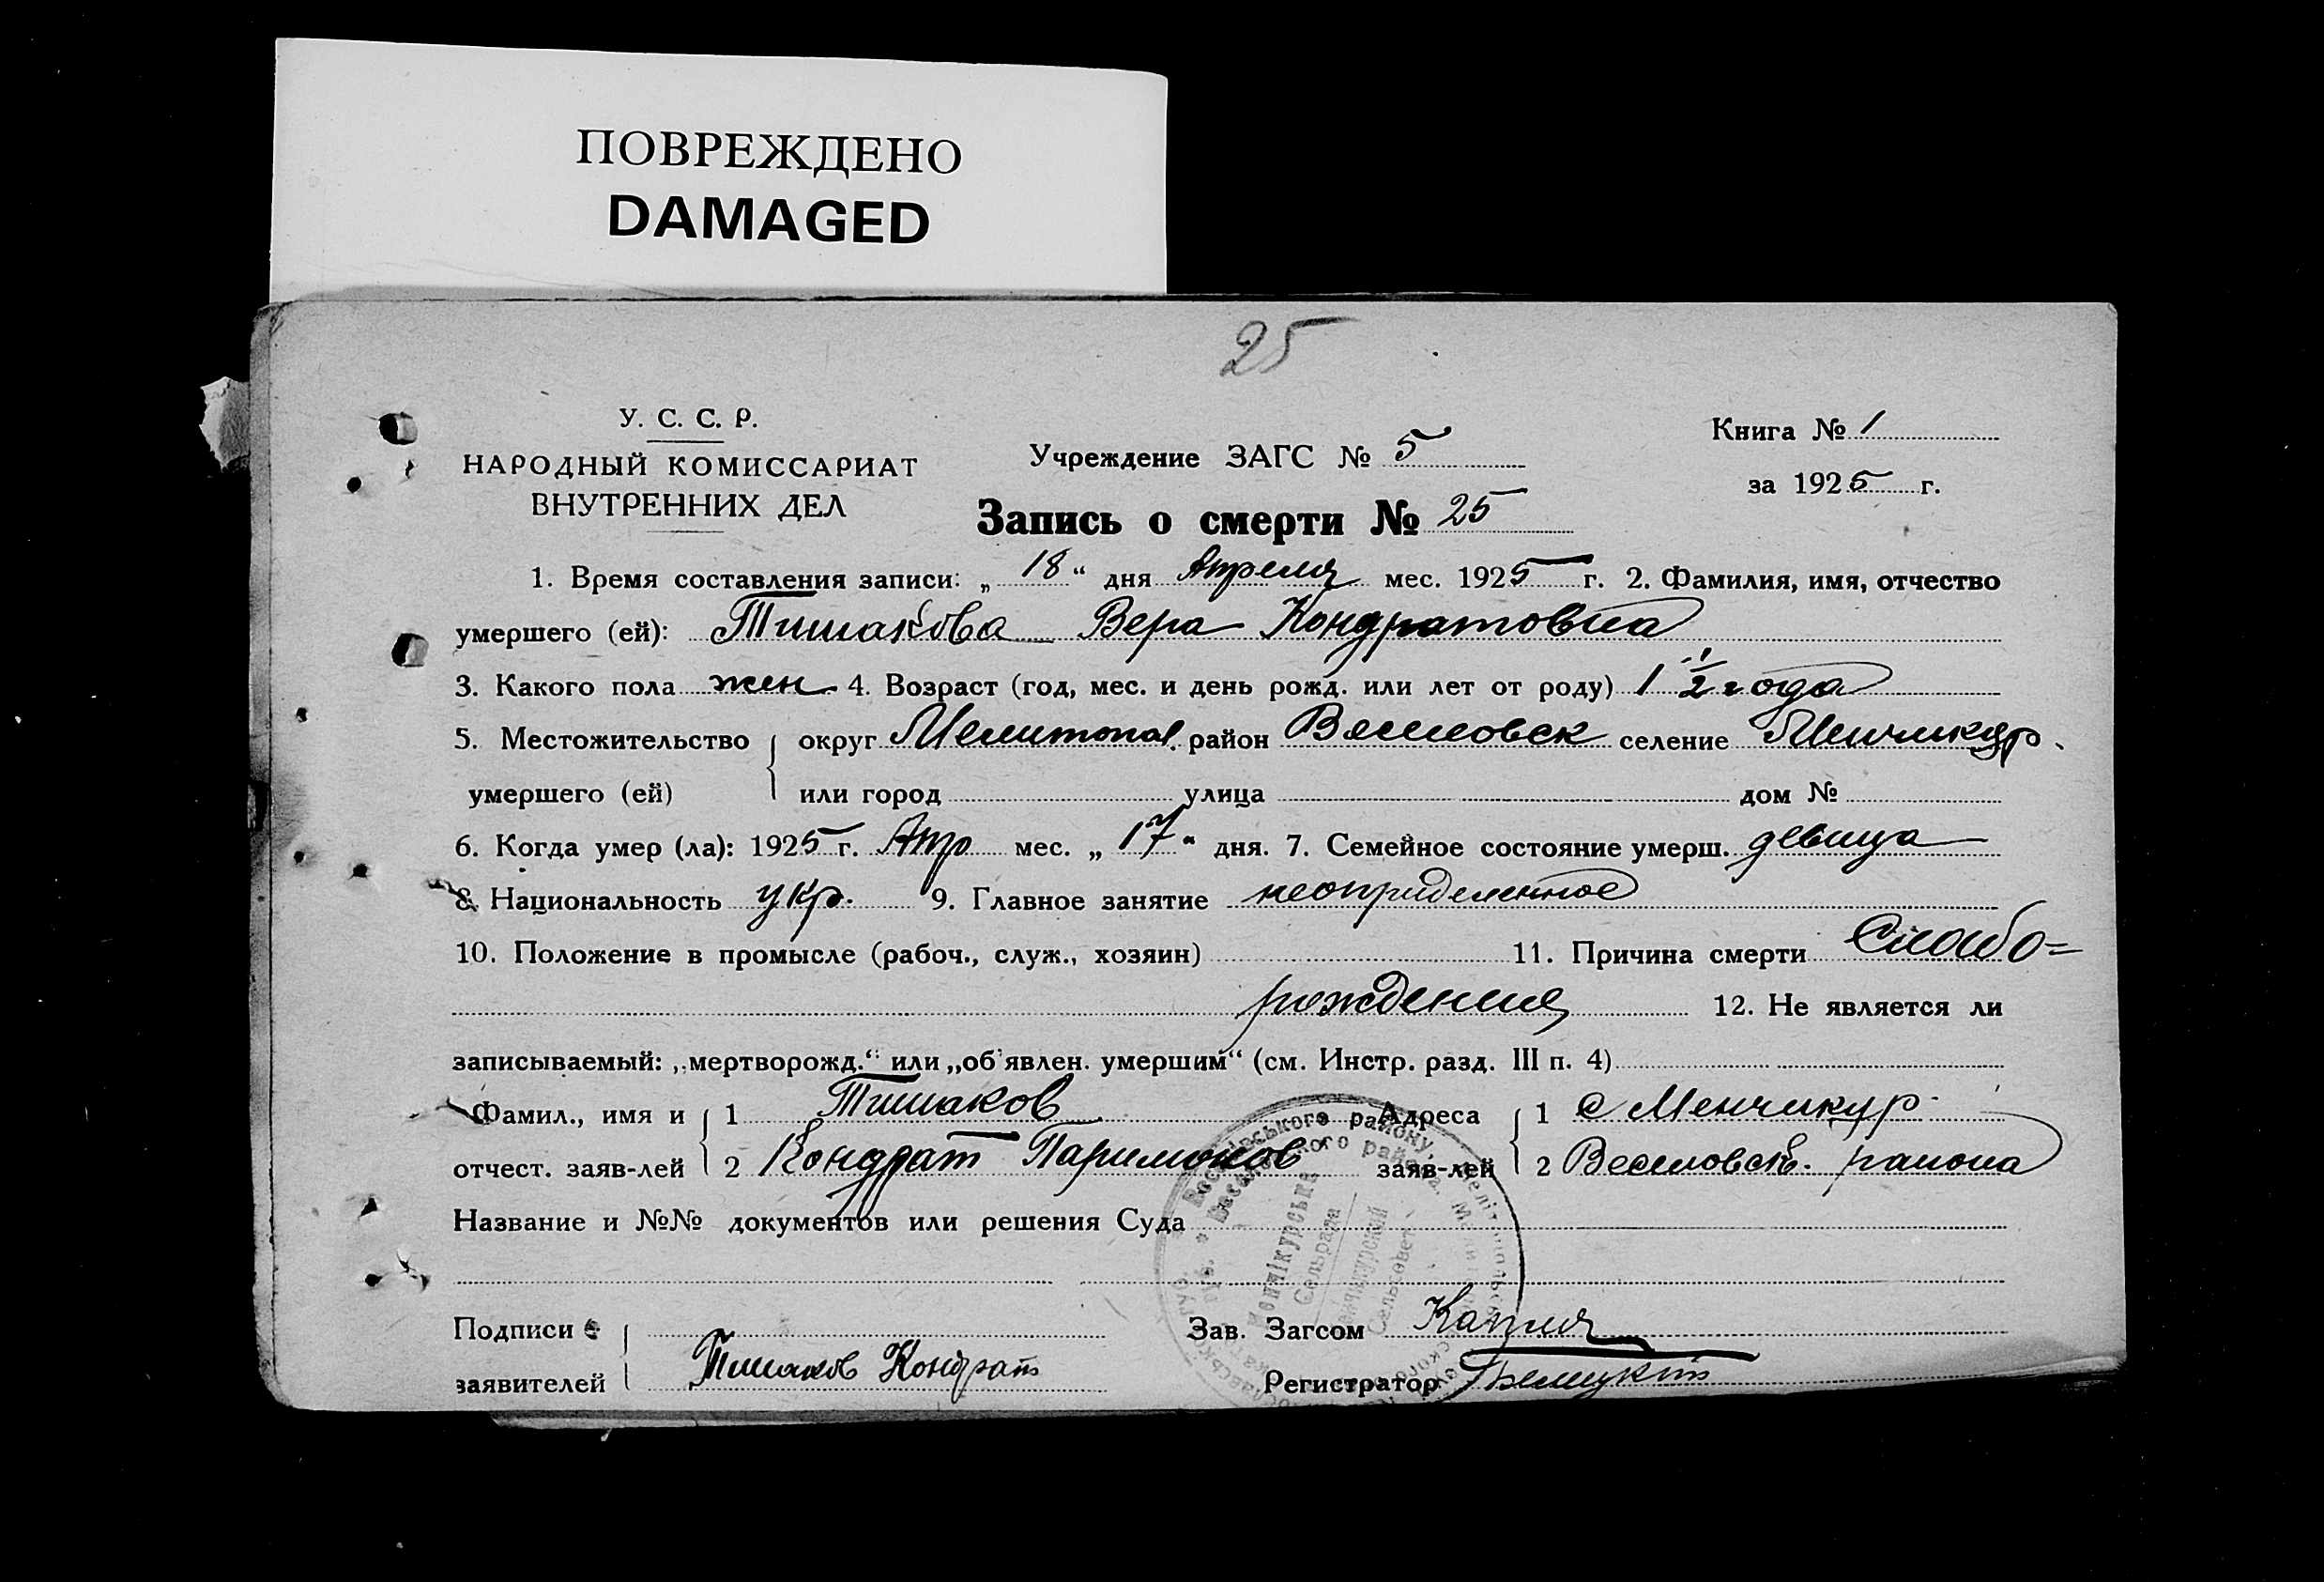 ПОВРЕЖДЕНО
DAMAGED
25
У. С. С. Р.
НАРОДНЫЙ КОМИССАРИАТ
ВНУТРЕННИХ ДЕЛ
Учреждение ЗАГС № 5
Книга № 1
за 1925 г.
Запись о смерти № 25
1. Время составления записи: „18“ дня Апреля мес. 1925 г. 2. Фамилия, имя, отчество
умершего (ей): Тишакова Вера Кондратовна
3. Какого пола жен 4. Возраст (год, мес. и день рожд. или лет от роду) 1 1/2 года
5. Местожительство округ Мелитопол. район Веселовск селение Менчикур.
умершего (ей) или город улица дом №
6. Когда умер (ла): 1925 г. Апр мес. „17“ дня. 7. Семейное состояние умерш. девица
8. Национальность укр. 9. Главное занятие неопределенное
10. Положение в промысле (рабоч., служ., хозяин) 11. Причина смерти Слабо=
рождения 12. Не является ли
записываемый: „мертворожд.“ или „об'явлен. умершим“ (см. Инстр. разд. III п. 4)
Фамил., имя и 1 Тишаков Адреса 1 с Менчикур
отчест. заяв-лей 2 Кондрат Паримонов заяв-лей 2 Веселовск. района
Название и №№ документов или решения Суда
Менчікурська
Сельрада
Менчикурский
Сельсовет
Подписи Зав. Загсом
заявителей Тишаков Кондрат Регистратор